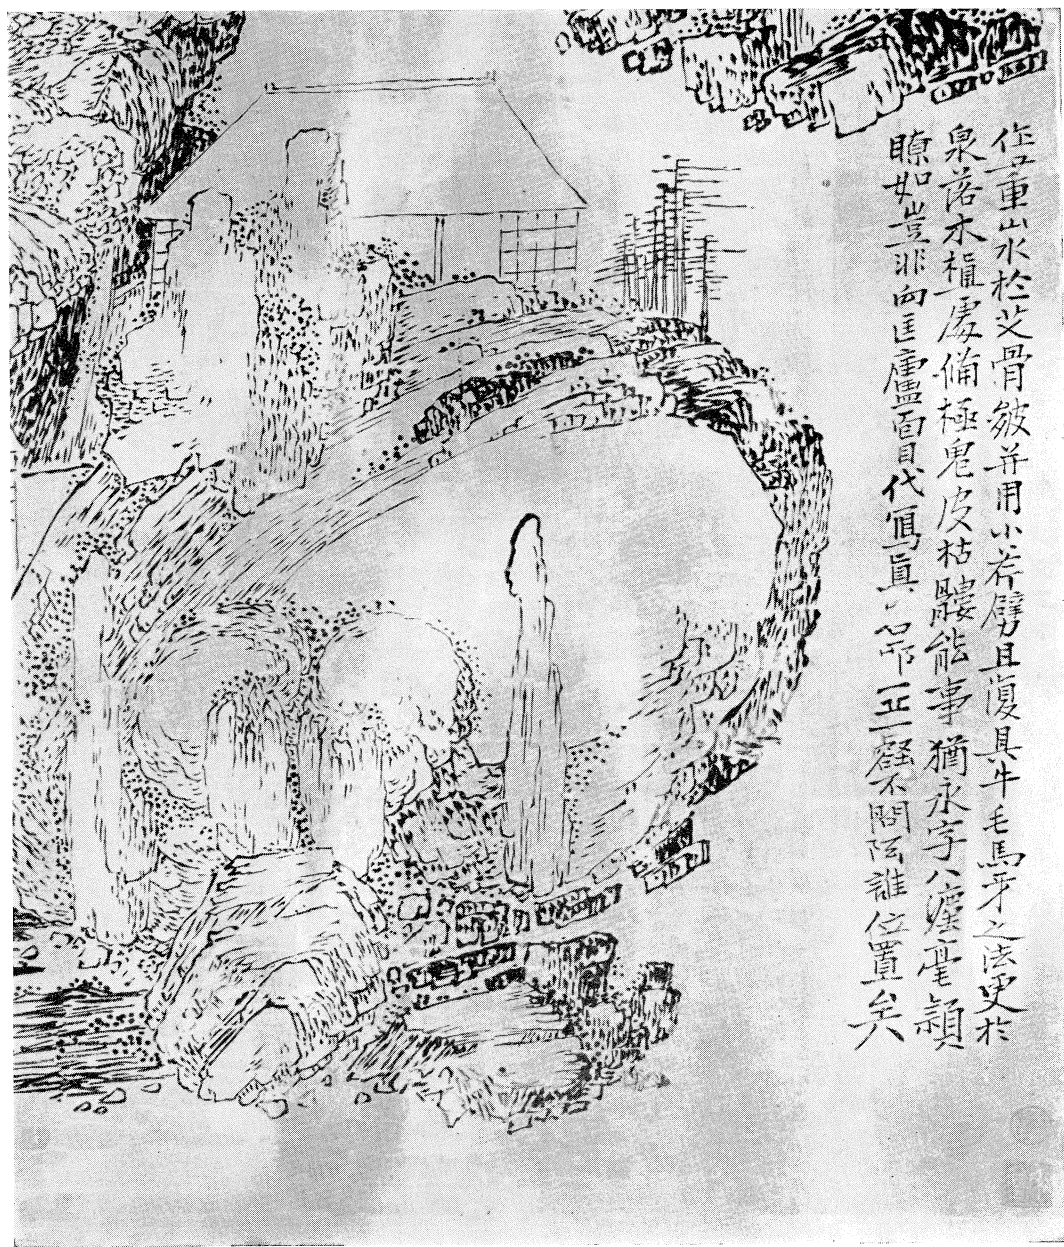 作重山水於艾骨皴并用小斧劈且復具牛毛馬牙之法更於
泉落木處備極鬼皮枯髏能事猶永字八毫穎
瞭如豈非向匡廬面目代寫真即一丘一壑不問誰位置矣